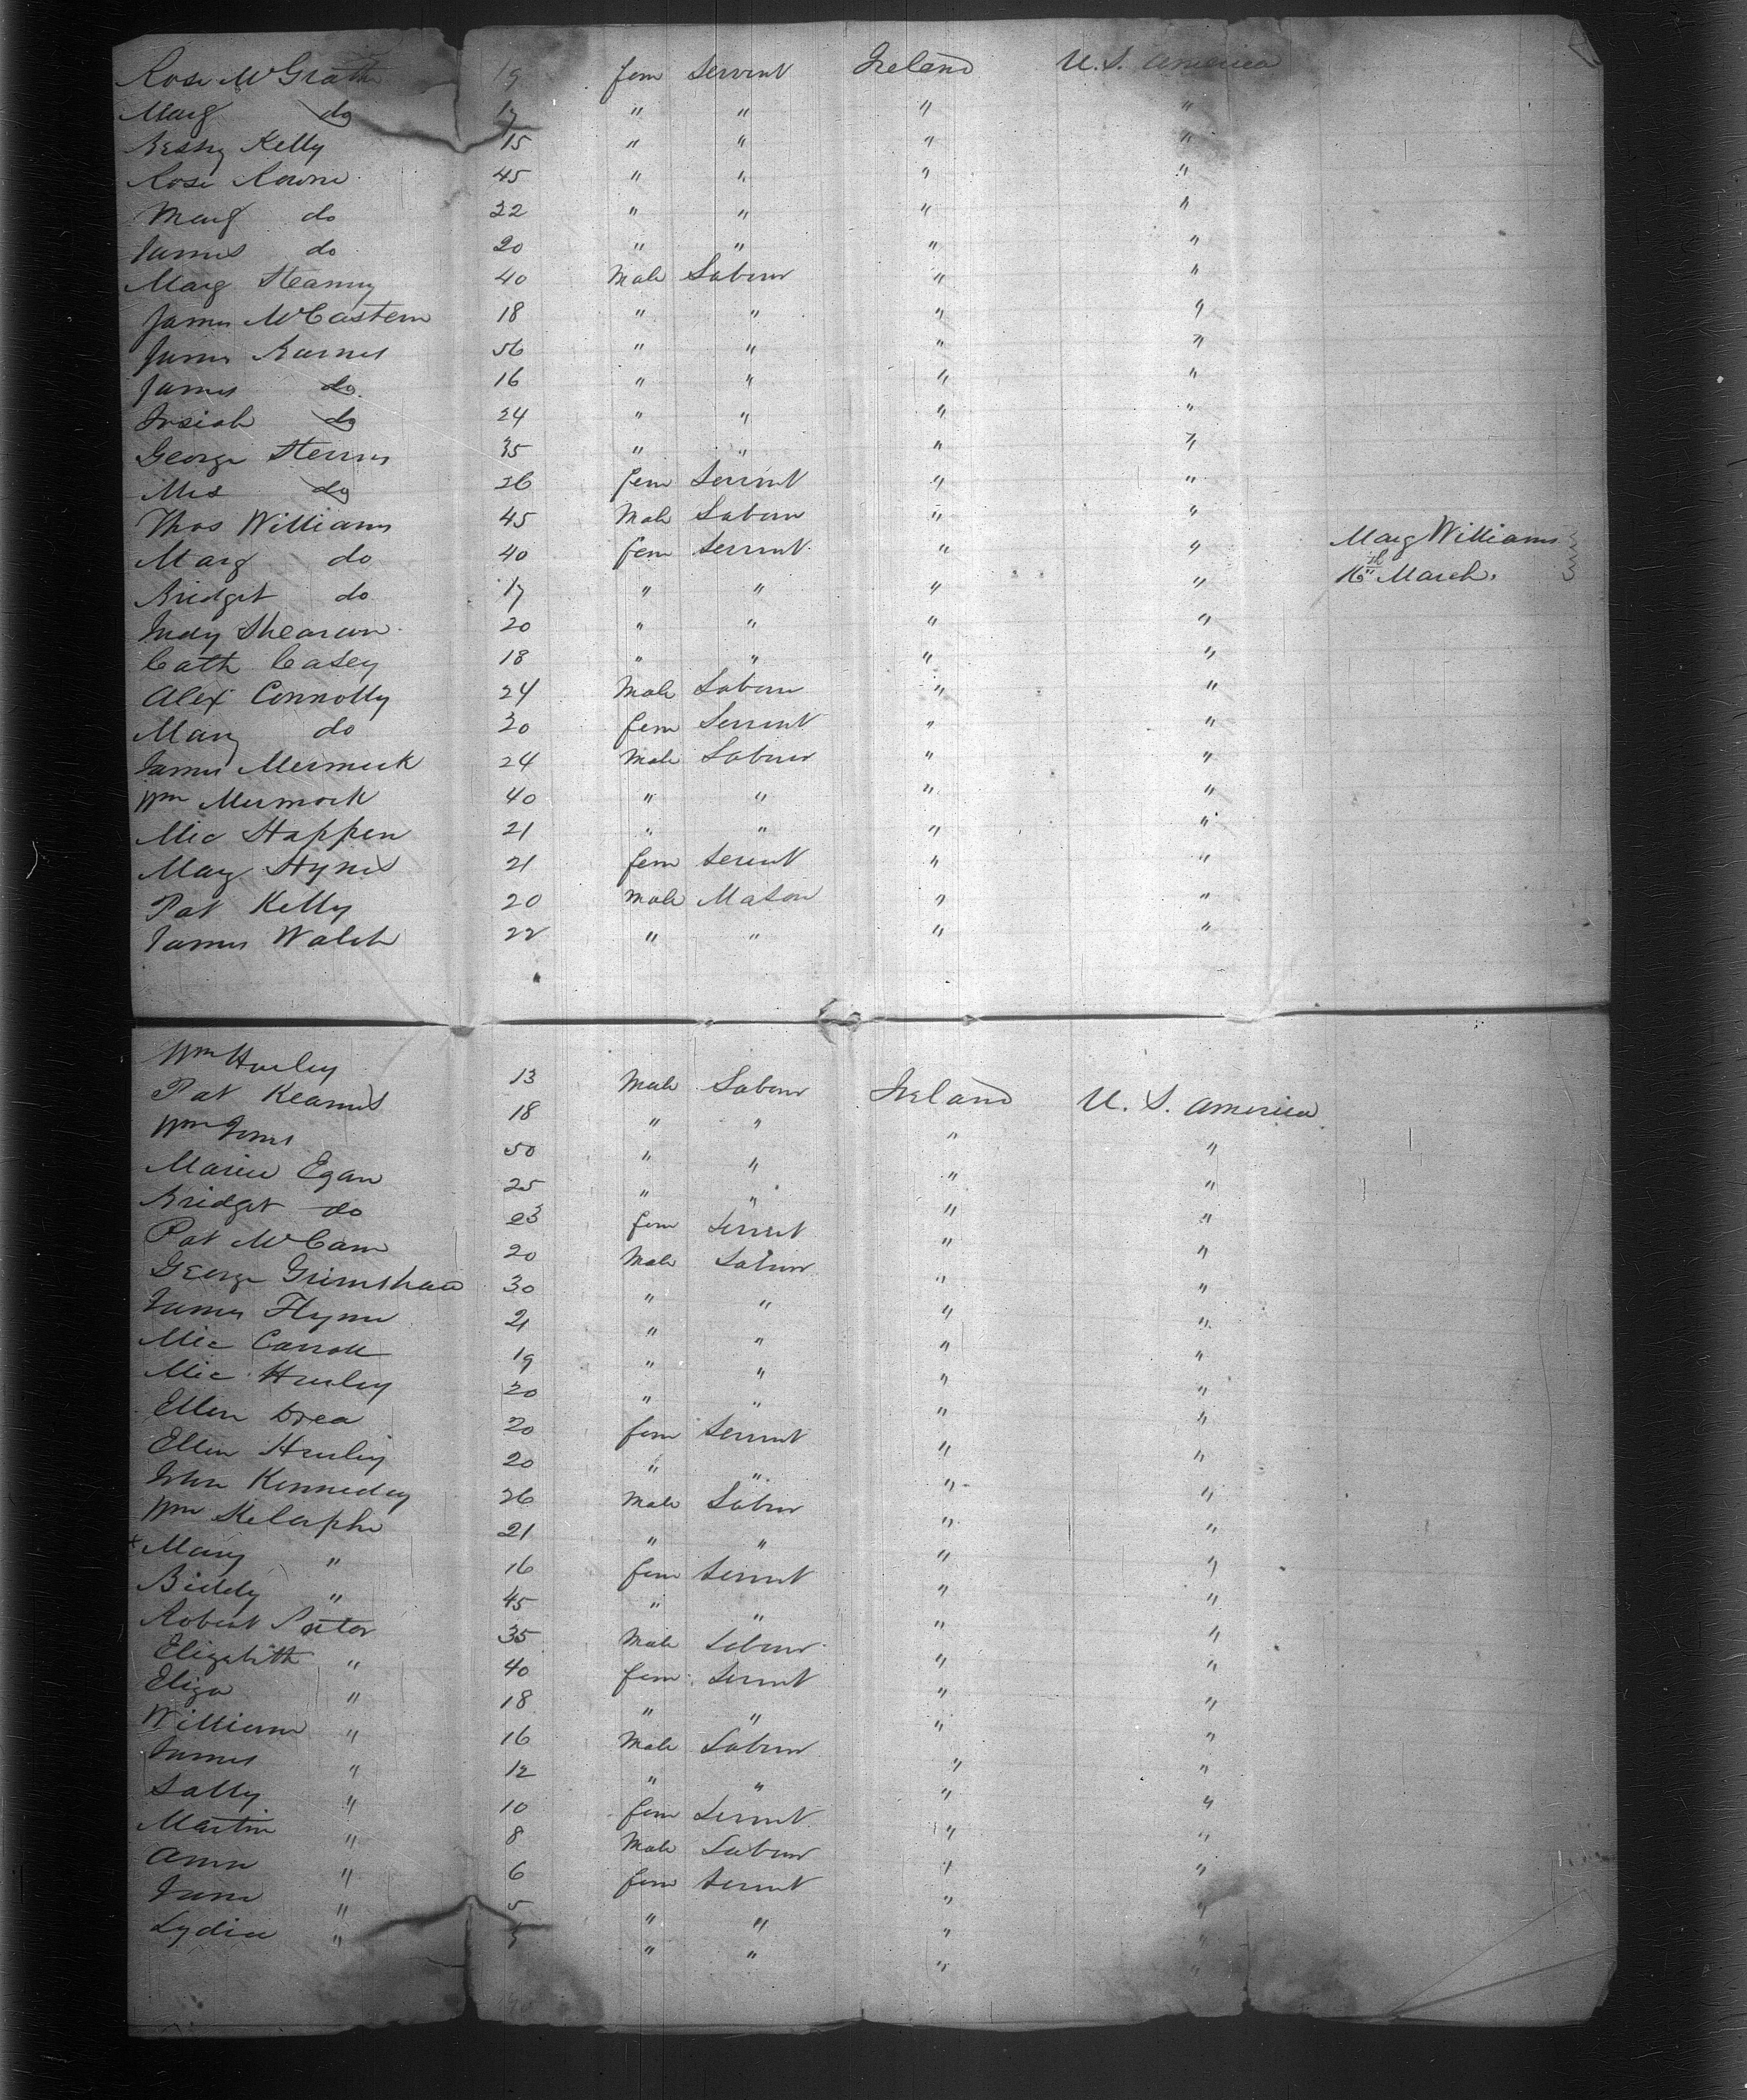 Rose McGrath 19 fem Servent Ireland U.S. America
Marg do 17 " " " "
Bessy Kelly 15 " " " "
Rose Rowne 45 " " " "
Marg do 22 " " " "
James do 20 " " " "
Marg Steanny 40 Male Labour " "
James McCastern 18 " " " "
James Barnes 56 " " " "
James do 16 " " " "
Josiah do 24 " " " "
George Sterns 35 " " " "
Mrs do 26 fem Servent " "
Thos Williams 45 Male Labour " "
Marg do 40 fem Servent " " Marg Williams
16th March.
Bridget do 17 " " " "
Judy Shearen 20 " " " "
Cath Casey 18 " " " "
Alex Connolly 24 Male Labour " "
Mary do 20 fem Servent " "
James Mermock 24 Male Labour " "
Wm Mermock 40 " " " "
Mic Happen 21 " " " "
Mary Hynes 21 fem Servent " "
Pat Kelly 20 Male Mason " "
James Walsh 22 " " " "
Wm Hurley 13 Male Labour Ireland U.S. America
Pat Kearnes 18 " " " "
Wm Jones 50 " " " "
Marice Egan 25 " " " "
Bridget do 23 fem Servent " "
Pat McCann 20 Male Labour " "
George Grimshaw 30 " " " "
James Flynn 21 " " " "
Mic Carroll 19 " " " "
Mic Hurley 20 " " " "
Ellen Drea 20 fem Servent " "
Ellen Hurley 20 " " " "
John Kennedy 26 Male Labour " "
Wm 21 " " " "
Mary " 16 fem Servent " "
Biddy " 45 " " " "
Robert Porter 35 Male Labour " "
Elizabeth " 40 fem Servent " "
Eliza " 18 " " " "
William " 16 Male Labour " "
James " 12 " " " "
Sally " 10 fem Servent " "
Martin " 8 Male Labour " "
Ann " 6 fem Servent " "
Jane " 5 " " " "
Lydia " " " " "